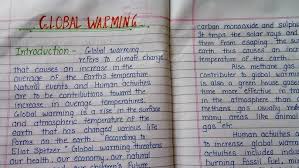 GLOBAL WARMING
Introduction :- Global warming
refers to climate change
that causes an increase in the
average of the Earth's temperature.
Natural events and Human activities
are to be contributions toward the
increase in average temperatures.
Global warming is a rise in the surface
and atmospheric temperature of the
earth that has changed various life
forms on the earth. According to
Eliot Spitzer " Global warming threatens
our health, our economy, our natural
carbon monoxide and sulphur
It traps the solar rays and
them from escaping the
earth this causes an incr
temperature of the earth
Also methane gas
contributor to global warming
is also a green house gas
more effective in tra
in the atmosphere than
methane gas usually rel
many areas like animal
gas etc.
Human activities a
to increase global warming
activities includes indus